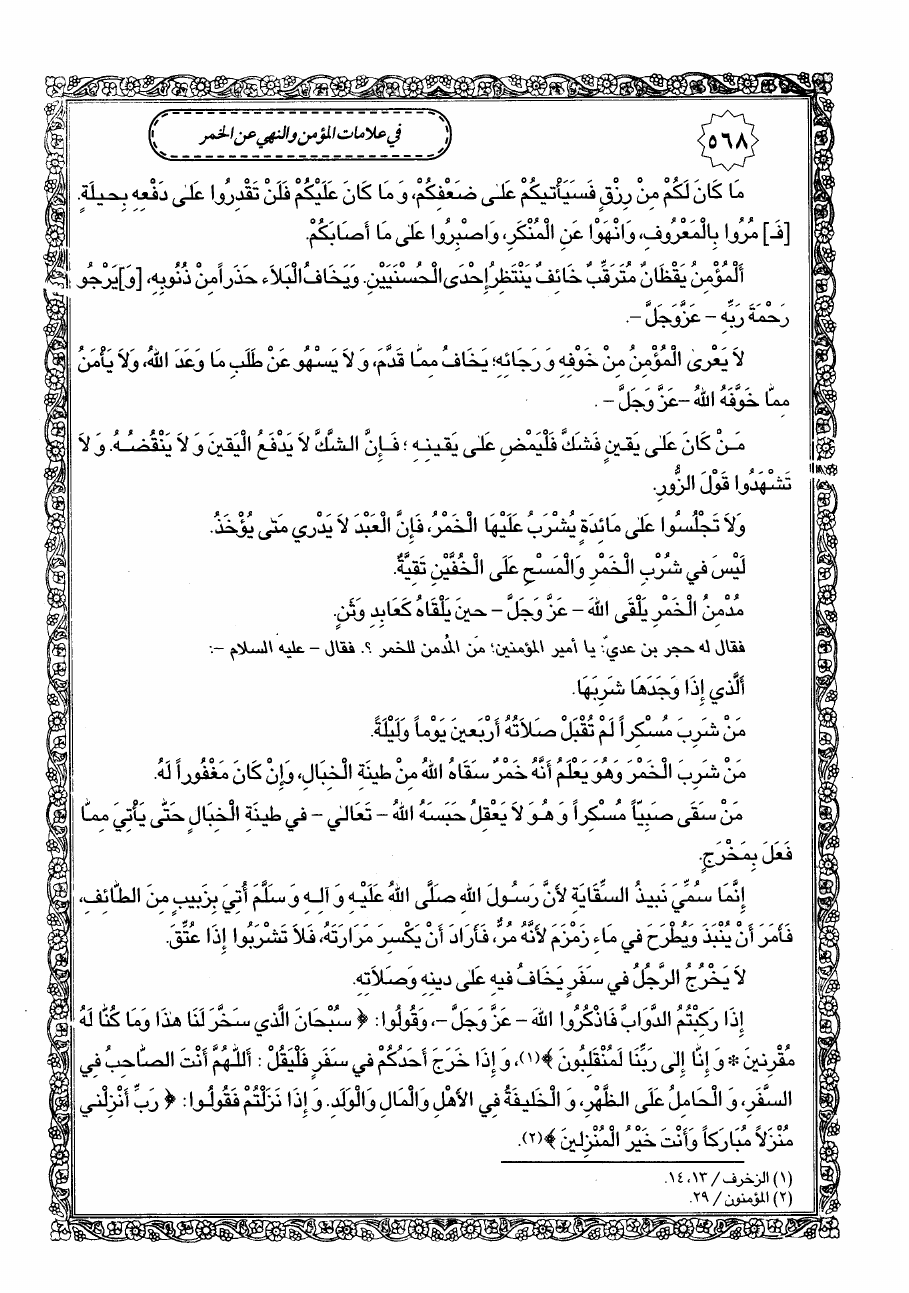 ٥٦٨
في علامات المؤمن والنهي عن الخمر
مَا كَانَ لَكُمْ مِنْ رِزْقٍ فَسَيَأْتيكُمْ عَلىٰ ضَعْفِكُمْ، وَ مَا كَانَ عَلَيْكُمْ فَلَنْ تَقْدِرُوا عَلىٰ دَفْعِهِ بِحيلَةٍ.
[فَـ] مُرُوا بِالْمَعْرُوفِ، وَانْهَوْا عَنِ الْمُنْكَرِ، وَاصْبِرُوا عَلىٰ مَا أَصَابَكُمْ.
أَلْمُؤْمِنُ يَقْظَانٌ مُتَرَقِّبٌ خَائِفٌ يَنْتَظِرُ إِحْدَى الْحُسْنَيَيْنِ. وَيَخَافُ الْبَلَاءَ حَذَراً مِنْ ذُنُوبِهِ، [وَ] يَرْجُو
رَحْمَةَ رَبِّهِ - عَزَّوَجَلَّ -.
لَا يَعْرىٰ الْمُؤْمِنُ مِنْ خَوْفِهِ وَ رَجَائِهِ؛ يَخَافُ مِمَّا قَدَّمَ، وَ لَا يَسْهُو عَنْ طَلَبِ مَا وَعَدَ اللهُ، وَلَا يَأْمَنُ
مِمَّا خَوَّفَهُ اللهُ -عَزَّ وَجَلَّ- .
مَـنْ كَانَ عَلىٰ يَقينٍ فَشَكَّ فَلْيَمْضِ عَلىٰ يَقينِـهِ ؛ فَـإِنَّ الشَّكَّ لَا يَدْفَعُ الْيَقينَ وَ لَا يَنْقُضـُهُ. وَ لَا
تَشْهَدُوا قَوْلَ الزُّورِ.
وَلَا تَجْلُسُوا عَلىٰ مَائِدَةٍ يُشْرَبُ عَلَيْهَا الْخَمْرُ، فَإِنَّ الْعَبْدَ لَا يَدْري مَتىٰ يُؤْخَذُ.
لَيْسَ في شُرْبِ الْخَمْرِ وَالْمَسْحِ عَلَى الْخُفَّيْنِ تَقِيَّةٌ.
مُدْمِنُ الْخَمْرِ يَلْقَى اللهَ - عَزَّ وَجَلَّ - حينَ يَلْقَاهُ كَعَابِدِ وَثَنٍ.
فقال له حجر بن عديّ: يا أمير المؤمنين؛ مَن المُدمن للخمر ؟. فقال - عليه السلام -:
أَلَّذي إِذَا وَجَدَهَا شَرِبَهَا.
مَنْ شَرِبَ مُسْكِراً لَمْ تُقْبَلْ صَلَاتُهُ أَرْبَعينَ يَوْماً وَلَيْلَةً.
مَنْ شَرِبَ الْخَمْرَ وَهُوَ يَعْلَمُ أَنَّهُ خَمْرٌ سَقَاهُ اللهُ مِنْ طينَةِ الْخِبَالِ، وَإِنْ كَانَ مَغْفُوراً لَهُ.
مَنْ سَقَى صَبِيّاً مُسْكِراً وَ هُـوَ لَا يَعْقِلُ حَبَسَهُ اللهُ - تَعَالىٰ - في طينَةِ الْخِبَالِ حَتّىٰ يَأْتِيَ مِمَّا
فَعَلَ بِمَخْرَجٍ.
إِنَّمَا سُمِّيَ نَبيذُ السِّقَايَةِ لأَنَّ رَسُولَ اللهِ صَلَّى اللهُ عَلَيْهِ وَ آلِـهِ وَ سَلَّمَ أُتِيَ بِزَبيبٍ مِنَ الطَّائِفِ،
فَأَمَرَ أَنْ يُنْبَذَ وَيُطْرَحَ في مَاءِ زَمْزَمَ لأَنَّهُ مُرٌّ، فَأَرَادَ أَنْ يَكْسِرَ مَرَارَتَهُ، فَلَا تَشْرَبُوا إِذَا عُتِّقَ.
لَا يَخْرُجُ الرَّجُلُ في سَفَرٍ يَخَافُ فيهِ عَلىٰ دينِهِ وَصَلَاتِهِ.
إِذَا رَكِبْتُمُ الدَّوَابَّ فَاذْكُرُوا اللهَ - عَزَّ وَجَلَّ -، وَقُولُوا: ﴿ سُبْحَانَ الَّذي سَخَّرَ لَنَا هٰذَا وَمَا كُنَّا لَهُ
مُقْرِنينَ * وَ إِنَّا إِلى رَبِّنَا لَمُنْقَلِبُونَ ﴾(١)، وَ إِذَا خَرَجَ أَحَدُكُمْ في سَفَرٍ فَلْيَقُلْ : أَللّٰهُمَّ أَنْتَ الصَّاحِبُ فِي
السَّفَرِ، وَ الْحَامِلُ عَلَى الظَّهْرِ، وَ الْخَليفَةُ فِي الأَهْلِ وَالْمَالِ وَالْوَلَدِ. وَ إِذَا نَزَلْتُمْ فَقُولُـوا: ﴿ رَبِّ أَنْزِلْني
مُنْزَلاً مُبَارَكاً وَأَنْتَ خَيْرُ الْمُنْزِلينَ ﴾(٢).
(١) الزخرف / ١٣، ١٤.
(٢) المؤمنون / ٢٩.